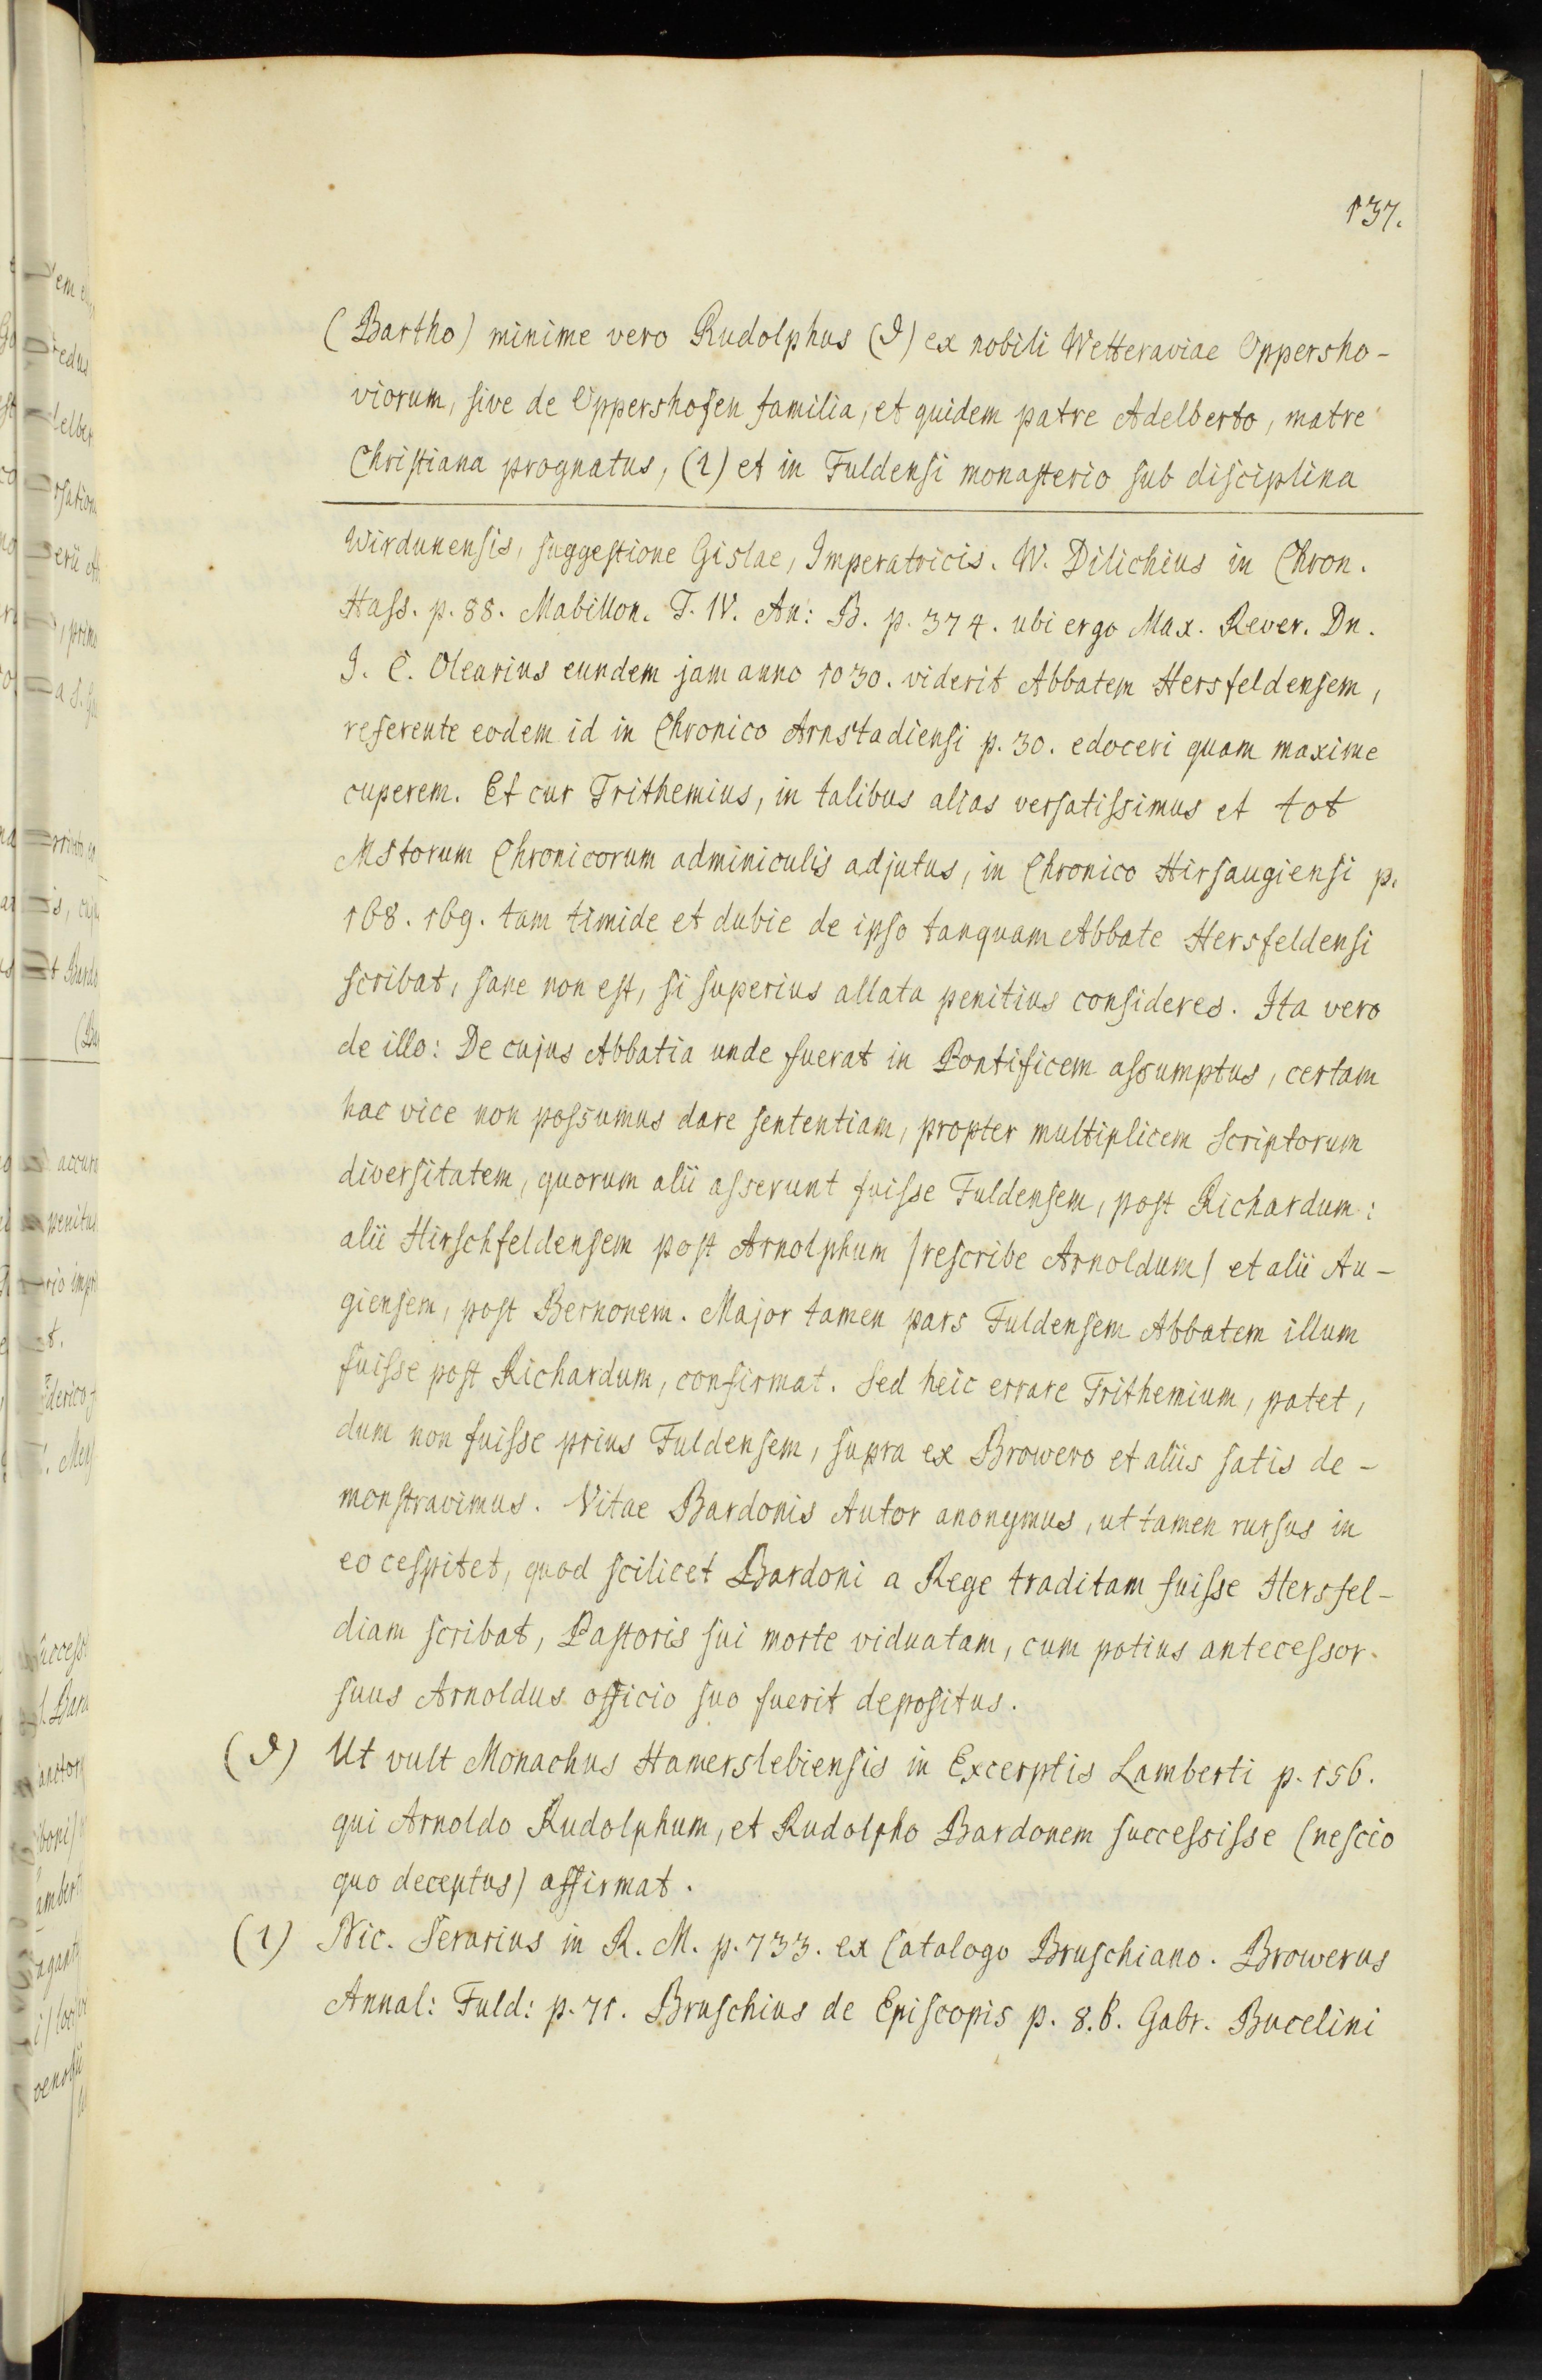 137.
(Bartho) minime vero Rudolphus (ϑ) ex nobili Wetteraviae Oppersho-
viorum, sive de Oppershofen familia, et quidem patre Adelberto, matre
Christiana prognatus, (ι) et in Fuldensi monasterio sub disciplina
Wirdunensis, suggestione Gislae, Imperatricis. W. Dilichius in Chron.
Hass. p. 88. Mabillon. T. IV. An: B. p. 374. ubi ergo Max. Rever. Dn.
J. C. Olearius eundem jam anno 1030. viderit Abbatem Hersfeldensem,
referente eodem id in Chronico Arnstadiensi p. 30. edoceri quam maxime
cuperem. Et cur Trithemius, in talibus alias versatissimus et tot
Mstorum Chronicorum adminiculis adjutus, in Chronico Hirsaugiensi p.
168. 169. tam timide et dubie de ipso tanquam Abbate Hersfeldensi
scribat, sane non est, si superius allata penitius consideres. Ita vero
de illo: De cujus Abbatia unde fuerat in Pontificem assumptus, certam
hac vice non possumus dare sententiam, propter multiplicem Scriptorum
diversitatem, quorum alii asserunt fuisse Fuldensem, post Richardum:
alii Hirschfeldensem post Arnolphum /rescribe Arnoldum/ et alii Au-
giensem, post Bernonem. Major tamen pars Fuldensem Abbatem illum
fuisse post Richardum, confirmat. Sed heic errare Trithemium, patet,
dum non fuisse prius Fuldensem, supra ex Browero et aliis satis de-
monstravimus. Vitae Bardonis Autor anonymus, ut tamen rursus in
eo cespitet, quod scilicet Bardoni a Rege traditam fuisse Hersfel-
diam scribat, Pastoris sui morte viduatam, cum potius antecessor
suus Arnoldus officio suo fuerit depositus.
(ϑ) Ut vult Monachus Hamerslebiensis in Excerptis Lamberti p. 156.
qui Arnoldo Rudolphum, et Rudolpho Bardonem successisse (nescio
quo deceptus) affirmat.
(ι) Nic. Serarius in R. M. p. 733. ex Catalogo Bruschiano. Browerus
Annal: Fuld: p. 71. Bruschius de Episcopis p. 8. b. Gabr. Bucelini